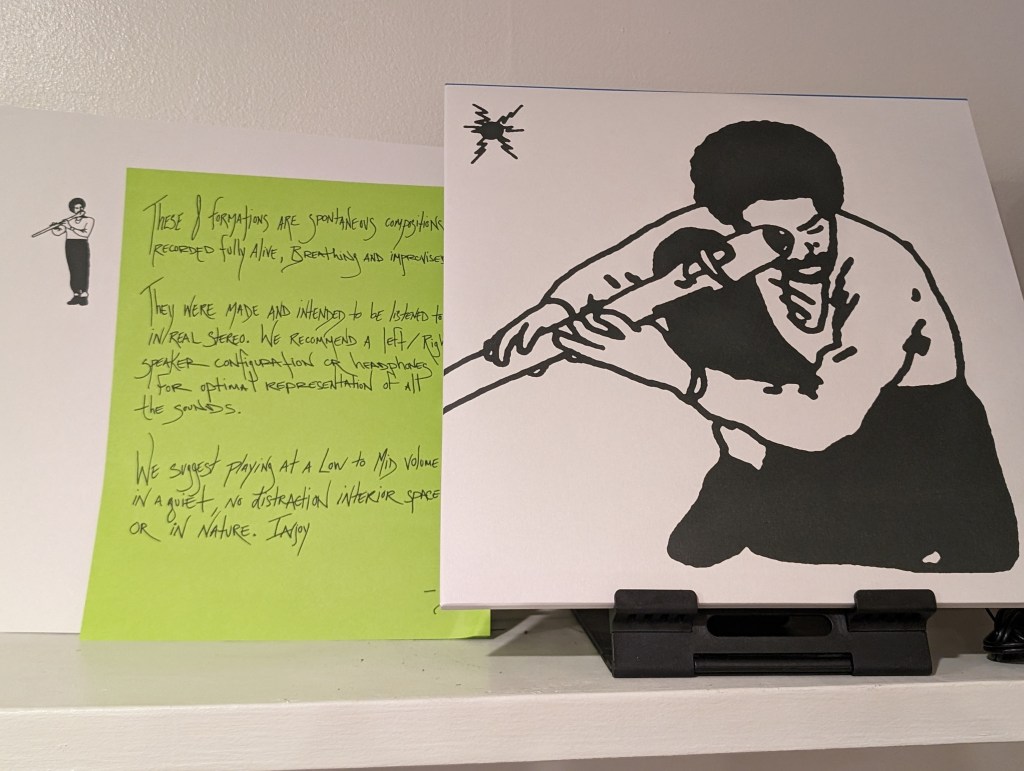 These 8 formations are spontaneous compositions
recorded fully Alive, Breathing and improvised
They were made and intended to be listened to
in/real stereo. We recommend a left/Righ
speaker configuration or headphones
for optimal representation of all
the sounds.
We suggest playing at a Low to Mid volume
in a quiet, no distraction interior space
or in nature. Injoy